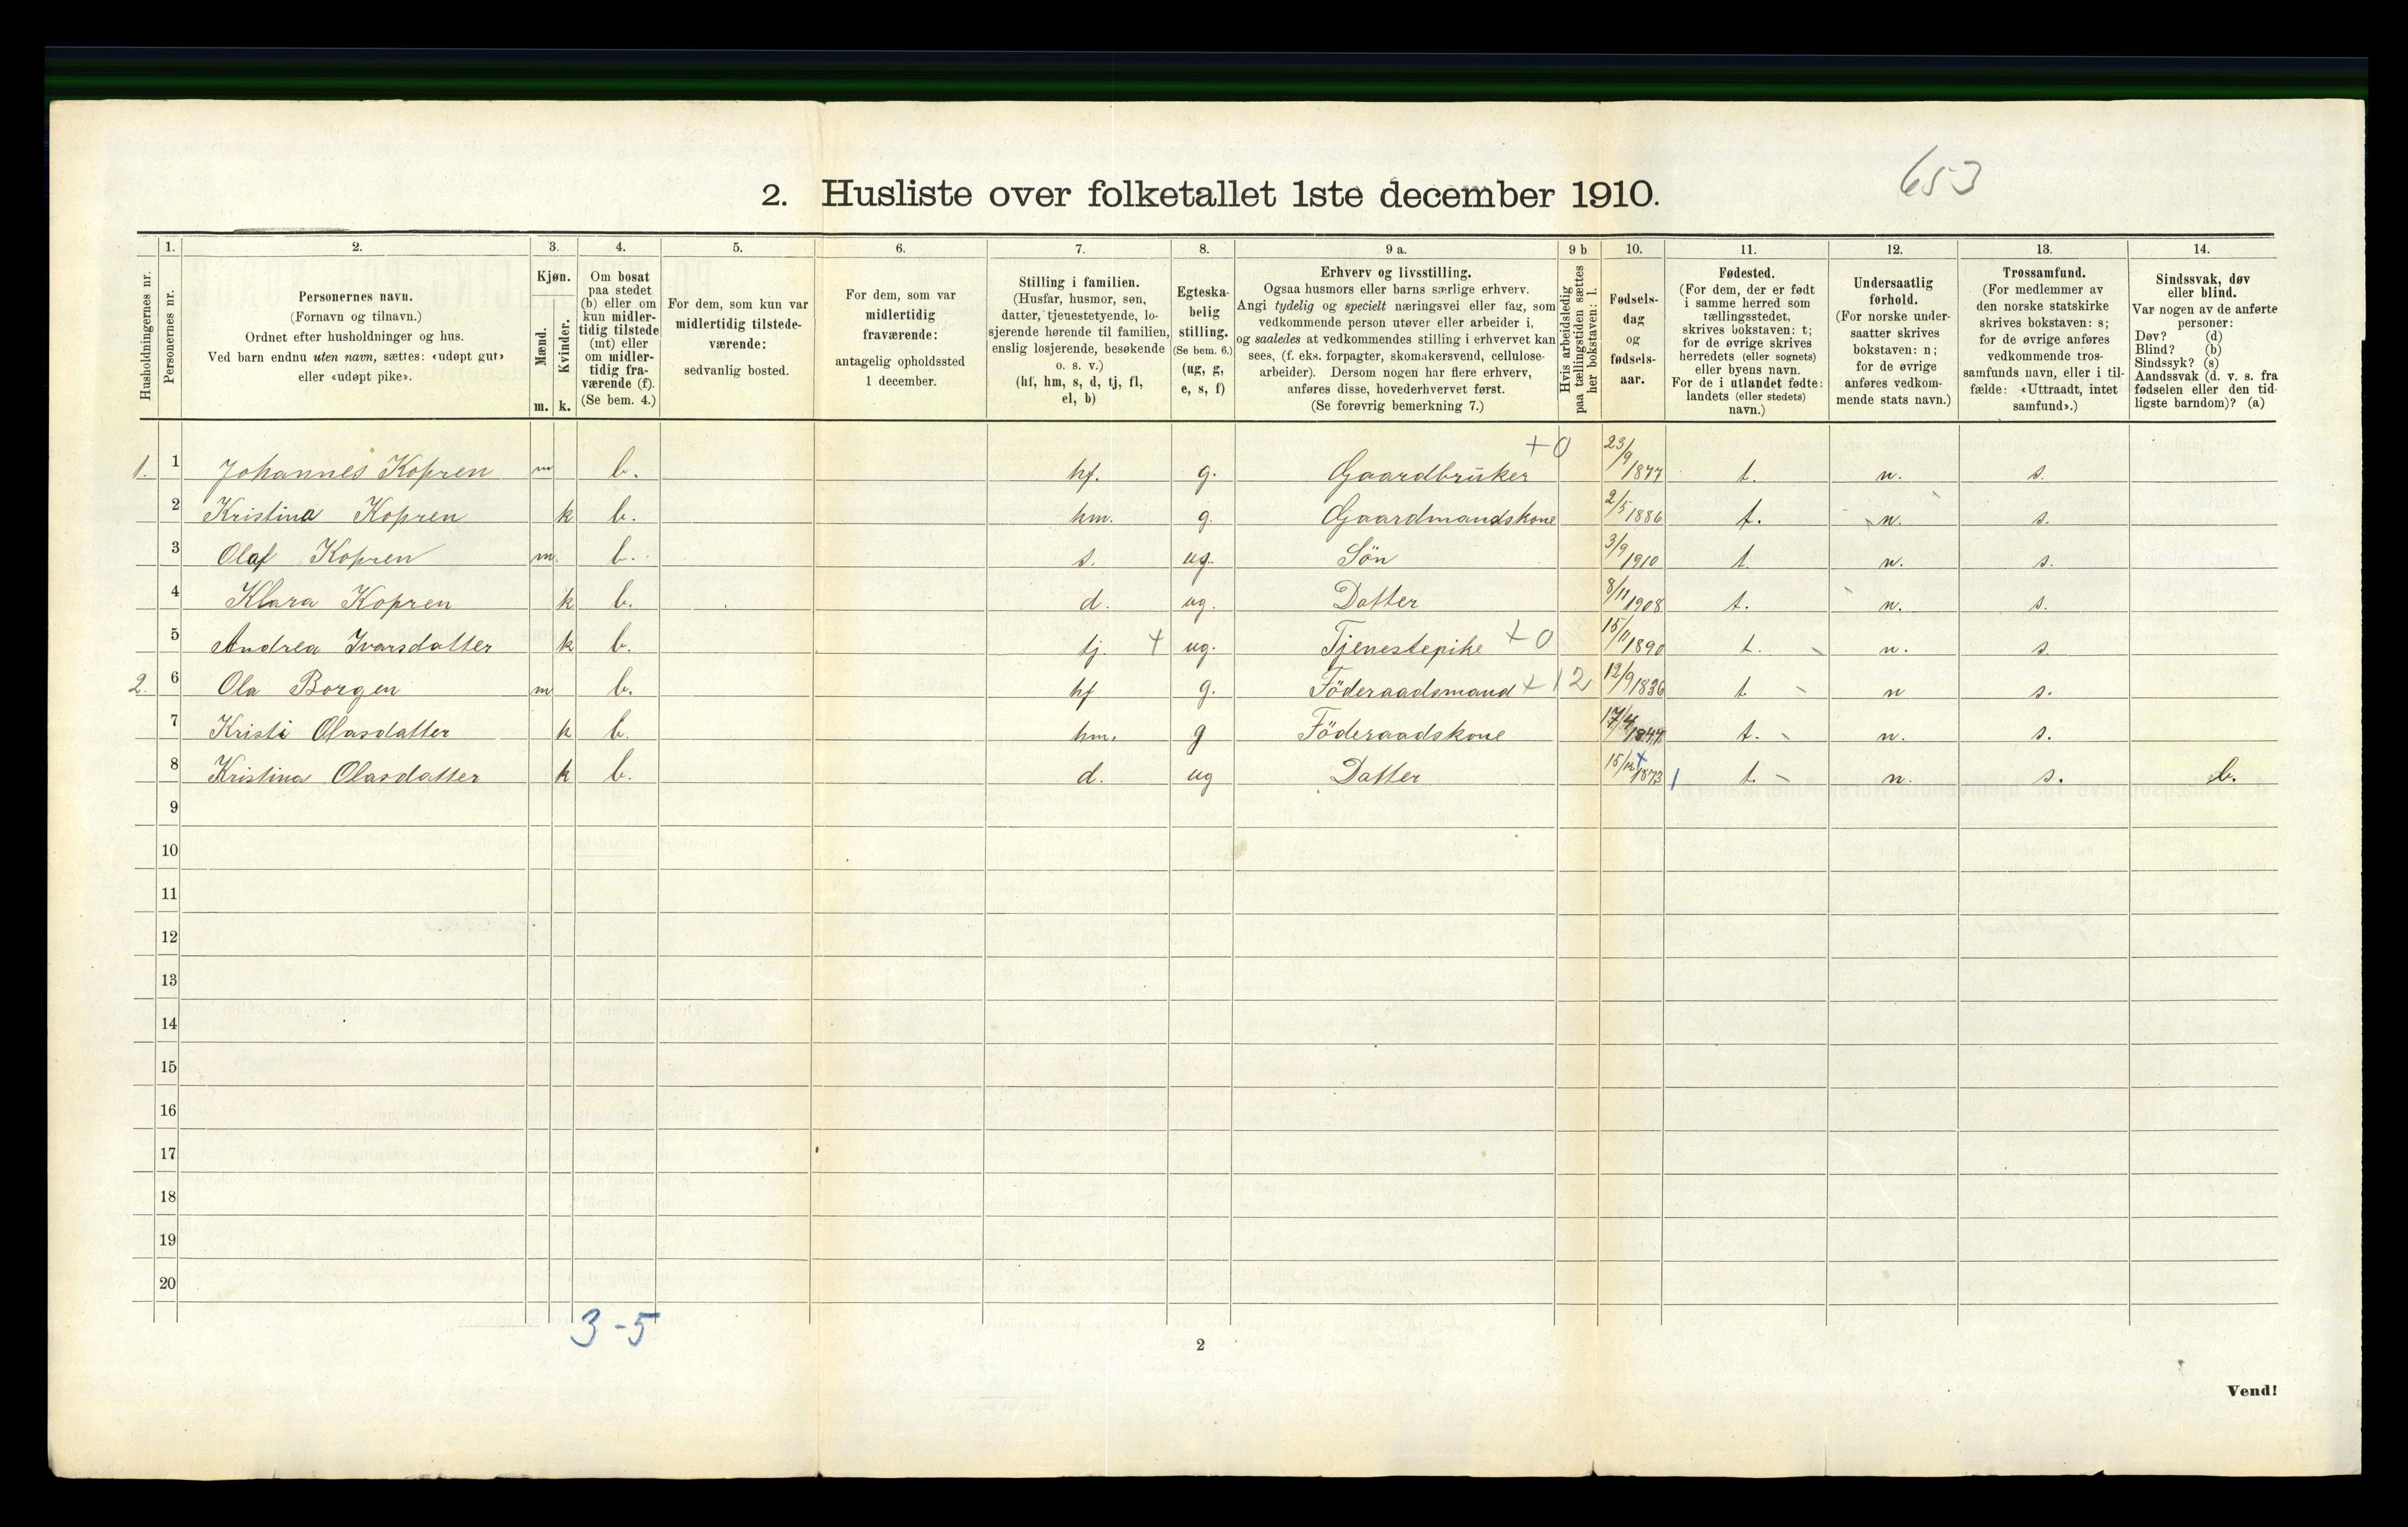 653
2. Husliste over folketallet 1ste december 1910.
Husholdningernes nr.
1. Personernes nr.
2. Personernes navn.
(Fornavn og tilnavn.)
Ordnet efter husholdninger og hus.
Ved barn endnu uten navn, sættes: «udøpt gut»
eller «udøpt pike».
3. Kjøn.
Mænd. Kvinder.
m. k.
4. Om bosat
paa stedet
(b) eller om
kun midler-
tidig tilstede
(mt) eller
om midler-
tidig fra-
værende (f).
(Se bem. 4.)
5. For dem, som kun var
midlertidig tilstede-
værende:
sedvanlig bosted.
6. For dem, som var
midlertidig
fraværende:
antagelig opholdssted
1 december.
7. Stilling i familien.
(Husfar, husmor, søn,
datter, tjenestetyende, lo-
sjerende hørende til familien,
enslig losjerende, besøkende
o. s. v.)
(hf, hm, s, d, tj, fl,
el, b)
8. Egteska-
belig
stilling.
(Se bem. 6.)
(ug, g,
e, s, f)
9 a. Erhverv og livsstilling.
Ogsaa husmors eller barns særlige erhverv.
Angi tydelig og specielt næringsvei eller fag, som
vedkommende person utøver eller arbeider i,
og saaledes at vedkommendes stilling i erhvervet kan
sees, (f. eks. forpagter, skomakersvend, cellulose-
arbeider). Dersom nogen har flere erhverv,
anføres disse, hovederhvervet først.
(Se forøvrig bemerkning 7.)
9 b Hvis arbeidsledig
paa tællingstiden sættes
her bokstaven: l.
10. Fødsels-
dag
og
fødsels-
aar.
11. Fødested.
(For dem, der er født
i samme herred som
tællingsstedet,
skrives bokstaven: t;
for de øvrige skrives
herredets (eller sognets)
eller byens navn.
For de i utlandet fødte:
landets (eller stedets)
navn.)
12. Undersaatlig
forhold.
(For norske under-
saatter skrives
bokstaven: n;
for de øvrige
anføres vedkom-
mende stats navn.)
13. Trossamfund.
(For medlemmer av
den norske statskirke
skrives bokstaven: s;
for de øvrige anføres
vedkommende tros-
samfunds navn, eller i til-
fælde: «Uttraadt, intet
samfund».)
14. Sindssvak, døv
eller blind.
Var nogen av de anførte
personer:
Døv? (d)
Blind? (b)
Sindssyk? (s)
Aandssvak (d. v. s. fra
fødselen eller den tid-
ligste barndom)? (a)
1. 1 Johannes Kopren m b. hf. g. Gaardbruker +0 23/9 1877 t. n. s.
2 Kristina Kopren k b. hm. g. Gaardmandskone 2/5 1886 t. n. s.
3 Olaf Kopren m. b. s. ug. Sön 3/9 1910 t. n. s.
4 Klara Kopren k b. d. ug. Datter 8/11 1908 t. n. s.
5 Andrea Ivarsdatter k b. tj. + ug. Tjenestepike +0 15/11 1890 t. n. s.
2. 6 Ola Borgen m b. hf g. Föderaadsmand +12 12/9 1836 t. n s.
7 Kristi Olasdatter k b. hm. g Föderaadskone 17/4 1847 t. n. s.
8 Kristina Olasdatter k b. d. ug Datter 15/12 1873 1 t. n. s. b.
9
10
11
12
13
14
15
16
17
18
19
20
3-5
2
Vend!